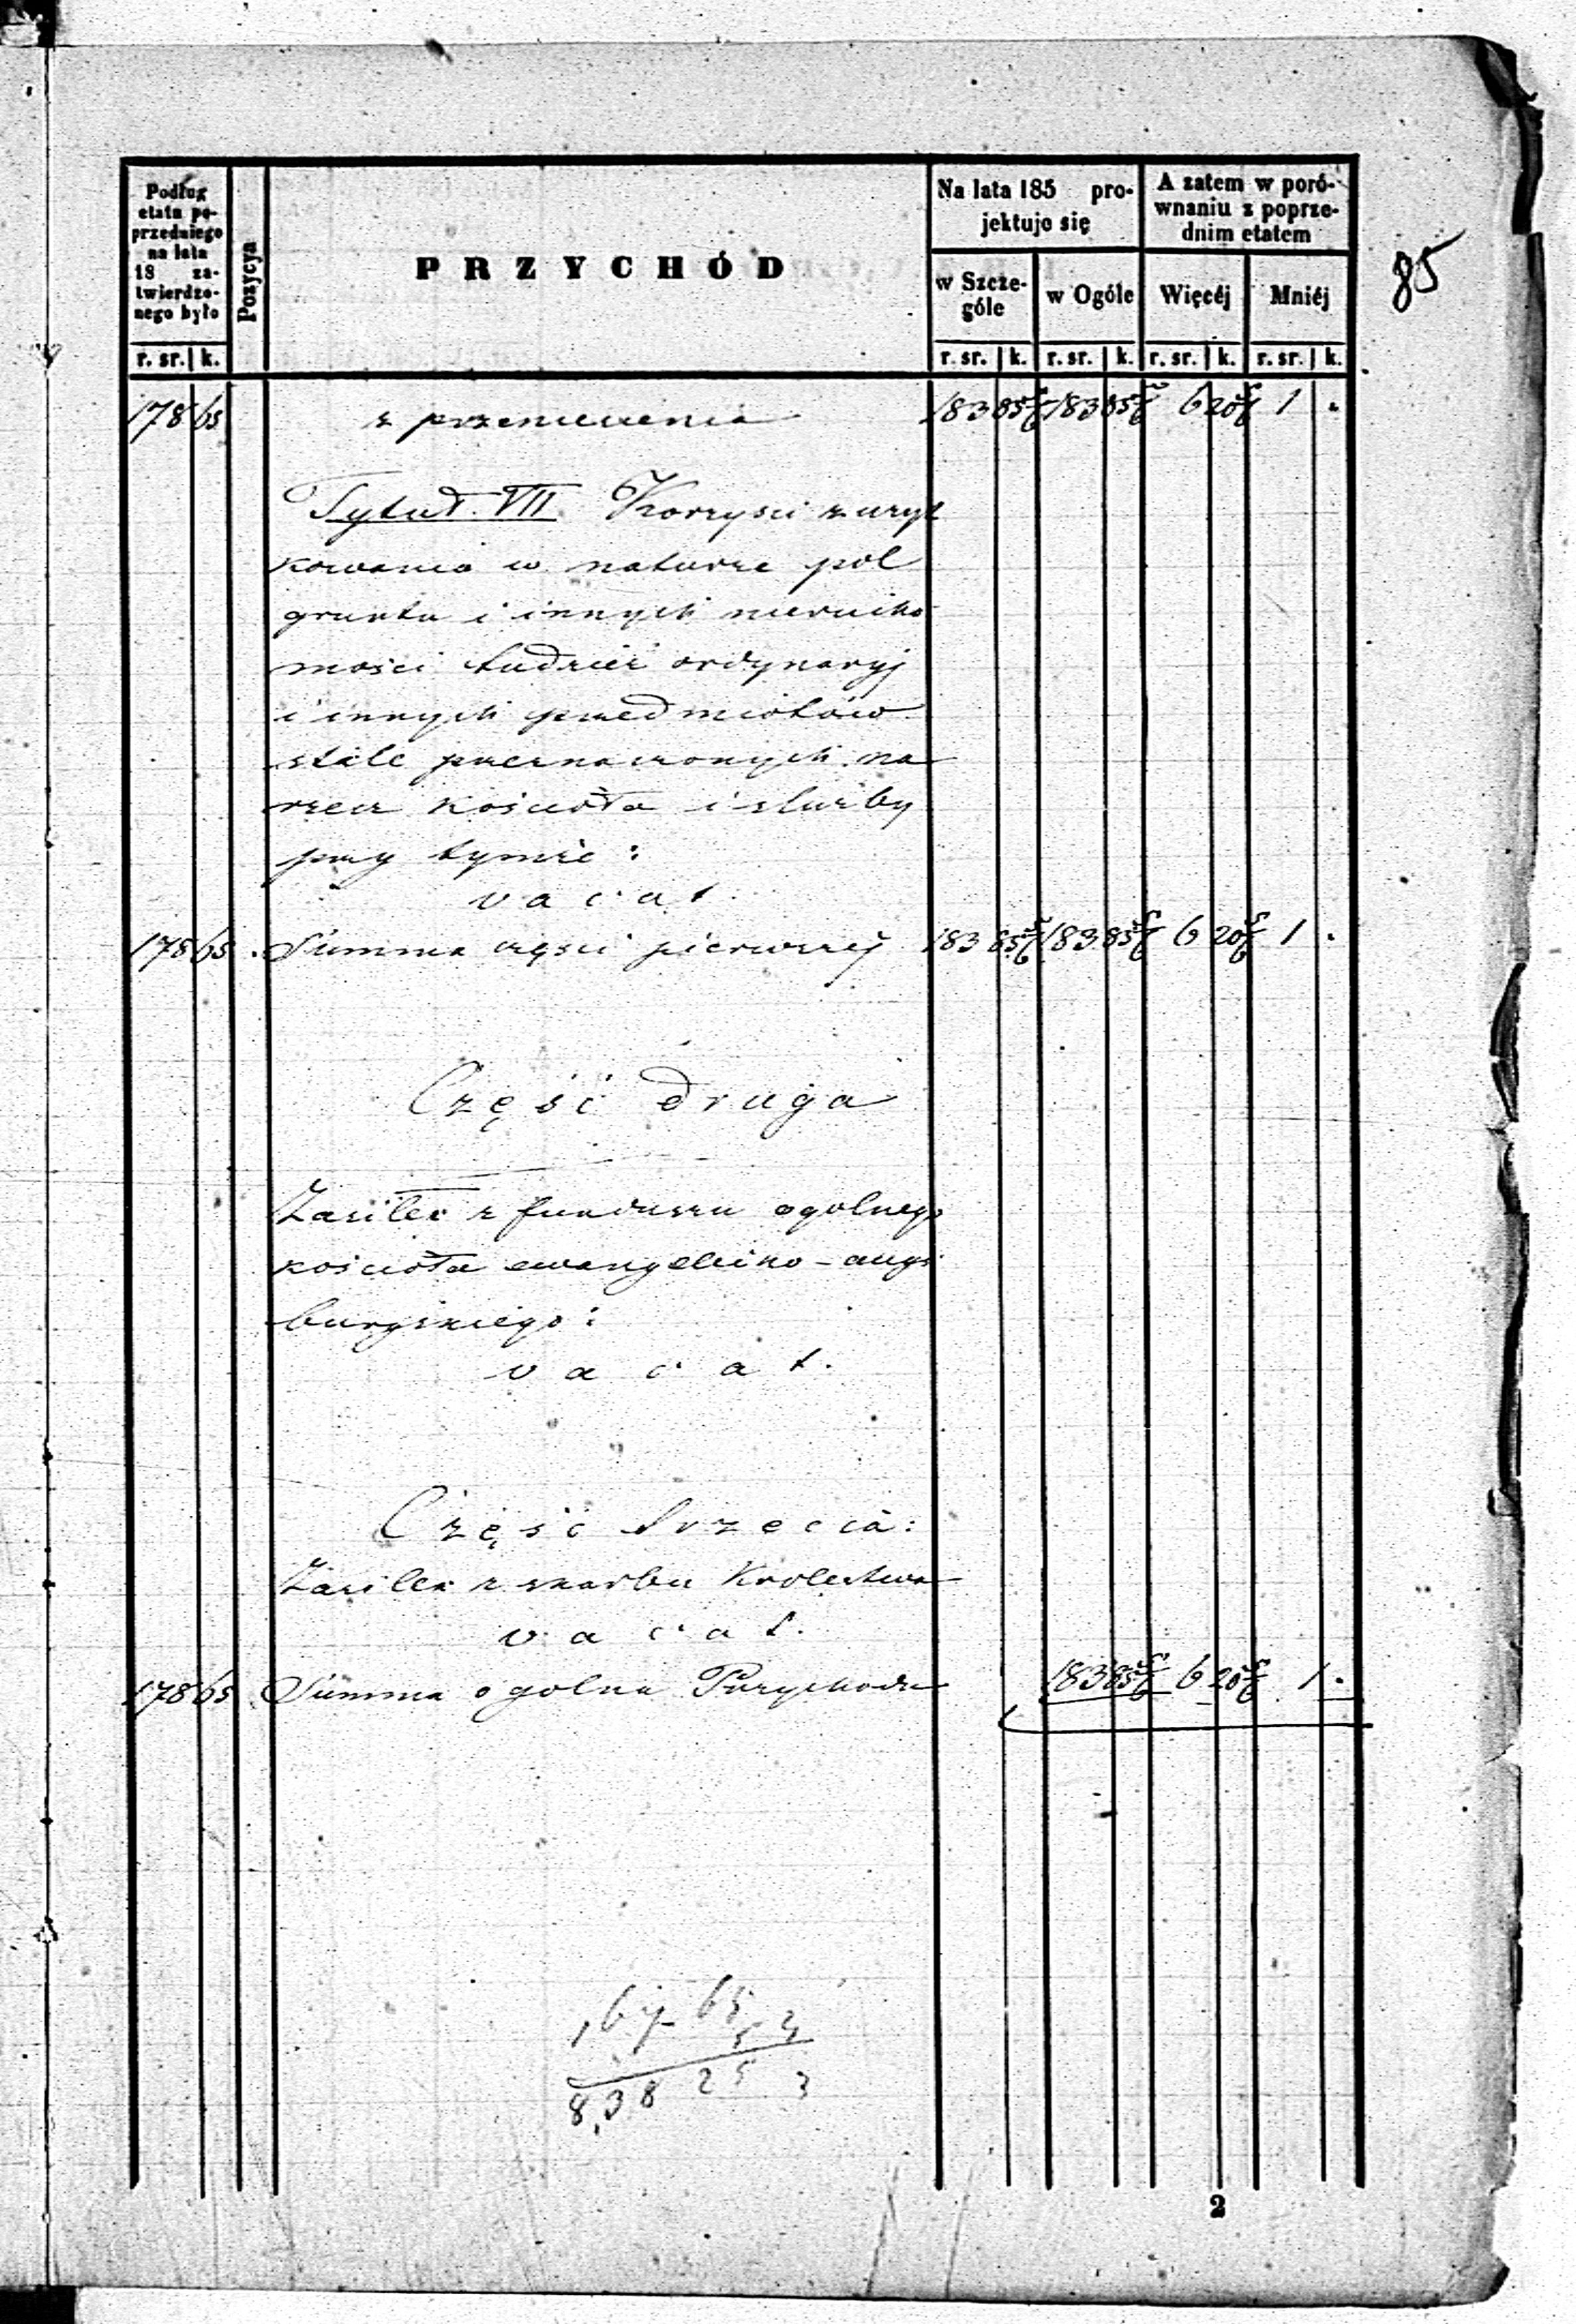 Podług etatu poprzedniego na lata 18 zatwierdzonego było
Pozycya
PRZYCHÓD
Na lata 185 projektuje się
A zatem w porównaniu z poprzednim etatem
w Szczególe
w Ogóle
Więcéj
Mniéj
r. sr. k. r. sr. k. r. sr. k. r. sr. k. r. sr. k.
85
178 65 z przeniesienia 183 85 5/6 183 85 5/6 6 20 5/6 1 "
Tytuł. VII. Korzysci z uzyt
kowania w naturze pol
gruntu i innych nierucho
mości tudzież ordynaryj
i innych przedmiotów
stale przeznaczonych na
rzecz kościoła i służby
przy tymże :
vacat.
178 65 Summa części pierwszej 183 85 5/6 183 85 5/6 6 20 5/6 1 "
Część druga
Zasilek z funduszu ogolnego
kościoła ewangelicko-augs
burgskiego :
vacat.
Część trzecia :
Zasilek z skarbu Krolestwa
vacat.
178 65 Summa ogolna Przychodu 183 85 5/6 6 20 5/6 1 "
167 65
8,38 25 3
2